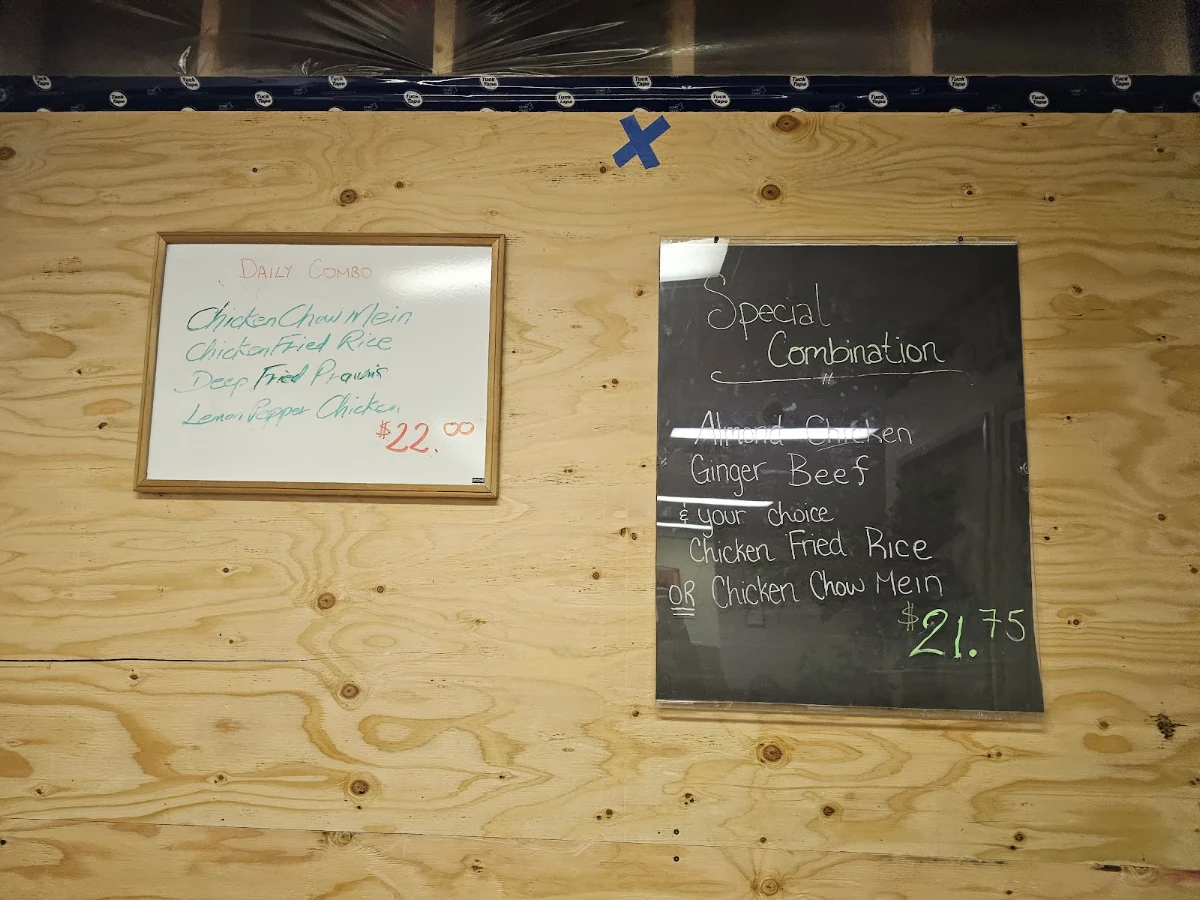 Tuck Tape
DAILY COMBO
Chicken Chow Mein
Chicken Fried Rice
Deep Fried Prawns
Lemon Pepper Chicken
$22.00
Special
Combination
Almond Chicken
Ginger Beef
& your choice
Chicken Fried Rice
OR Chicken Chow Mein
$21.75